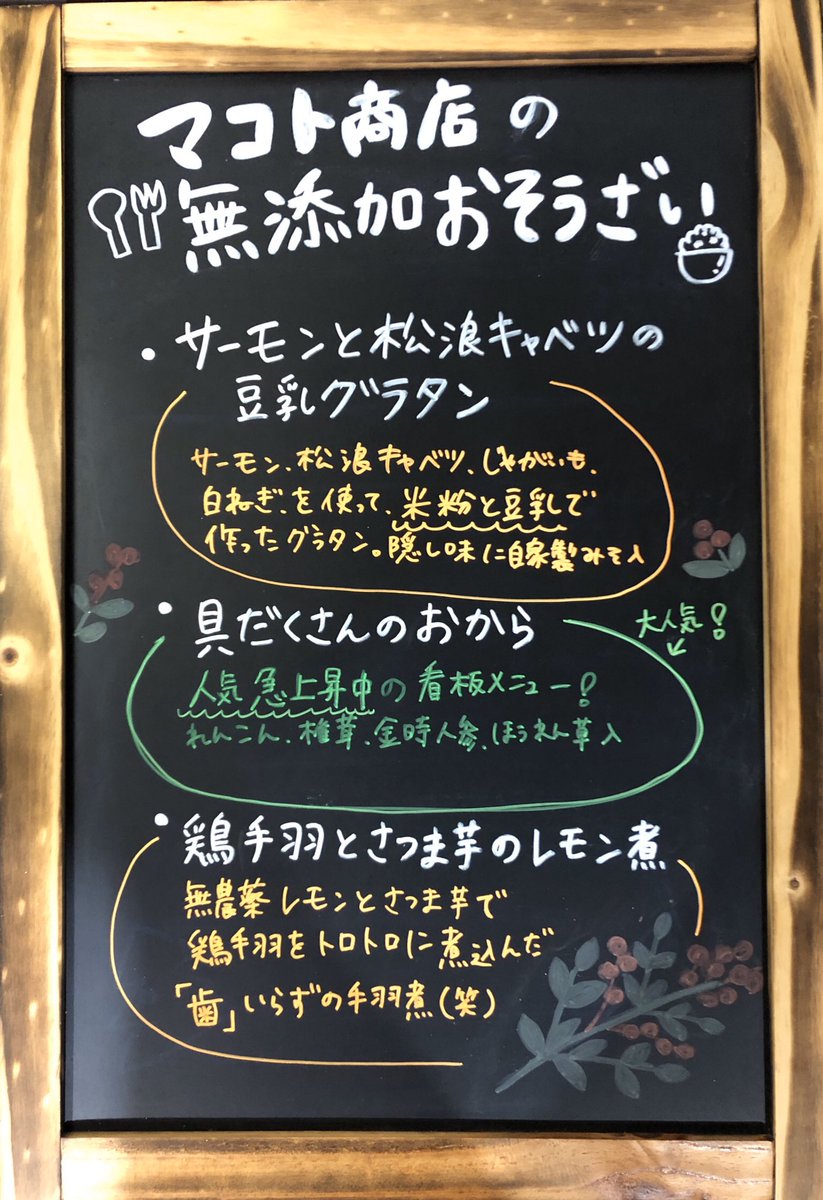 マコト商店の
無添加おそうざい
・サーモンと松浪キャベツの
豆乳グラタン
サーモン、松浪キャベツ、じゃがいも、
白ねぎ、を使って、米粉と豆乳で
作ったグラタン。隠し味に自家製みそ入
・具だくさんのおから
大人気!
人気急上昇中の看板メニュー!
れんこん、椎茸、金時人参、ほうれん草入
・鶏手羽とさつま芋のレモン煮
無農薬レモンとさつま芋で
鶏手羽をトロトロに煮込んだ
「歯」いらずの手羽煮(笑)